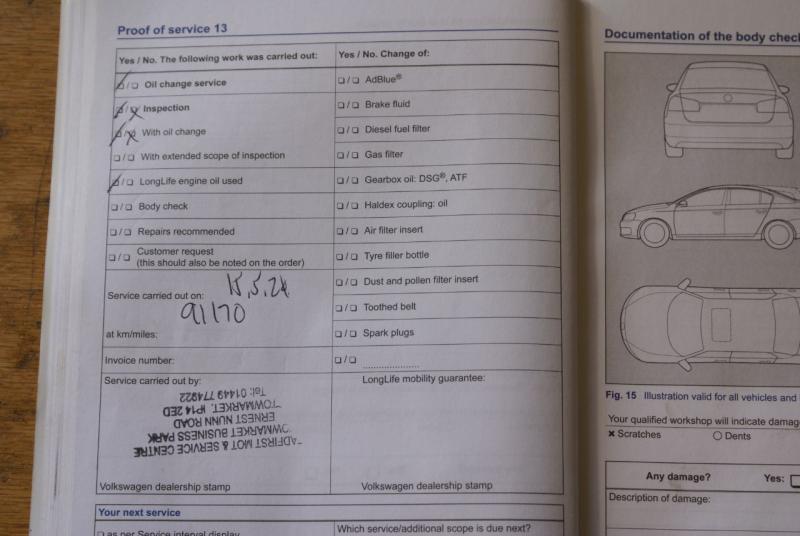 Proof of service 13
Yes / No. The following work was carried out:
Yes / No. Change of:
☐/☐ Oil change service
☐/☐ AdBlue®
☐/☐ Inspection
☐/☐ Brake fluid
☐/☐ With oil change
☐/☐ Diesel fuel filter
☐/☐ With extended scope of inspection
☐/☐ Gas filter
☐/☐ LongLife engine oil used
☐/☐ Gearbox oil: DSG®, ATF
☐/☐ Body check
☐/☐ Haldex coupling: oil
☐/☐ Repairs recommended
☐/☐ Air filter insert
☐/☐ Customer request
(this should also be noted on the order)
☐/☐ Tyre filler bottle
☐/☐ Dust and pollen filter insert
Service carried out on: 15.5.21
☐/☐ Toothed belt
91170
at km/miles:
☐/☐ Spark plugs
Invoice number:
☐/☐ ......................
Service carried out by:
LongLife mobility guarantee:
ADFIRST MOT & SERVICE CENTRE
OWMARKET BUSINESS PARK
ERNEST NUNN ROAD
TOWMARKET, IP14 2ED
Tel: 01449 774922
Volkswagen dealership stamp
Volkswagen dealership stamp
Your next service
☐ as per Service interval display
Which service/additional scope is due next?
Documentation of the body chec
Fig. 15 Illustration valid for all vehicles and
Your qualified workshop will indicate damag
✖ Scratches
○ Dents
Any damage?
Yes: ☐
Description of damage: